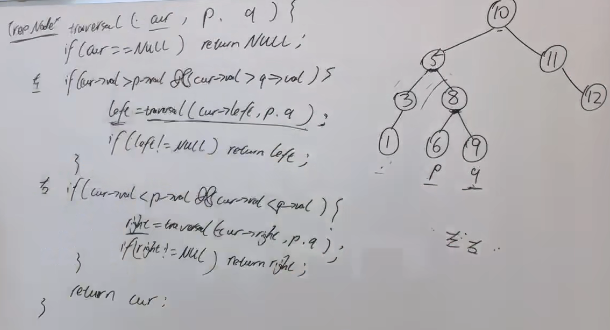 TreeNode* traversal (cur, p, q) {
if (cur==NULL) return NULL;
左 if (cur->val>p->val && cur->val>q->val) {
left=traversal(cur->left, p.q);
if (left!=NULL) return left;
}
右 if (cur->val<p->val && cur->val<q->val) {
right=traversal(cur->right, p.q);
if(right!=NULL) return right;
}
return cur;
}
10
5
11
3
8
12
1
6
9
p
q
左右